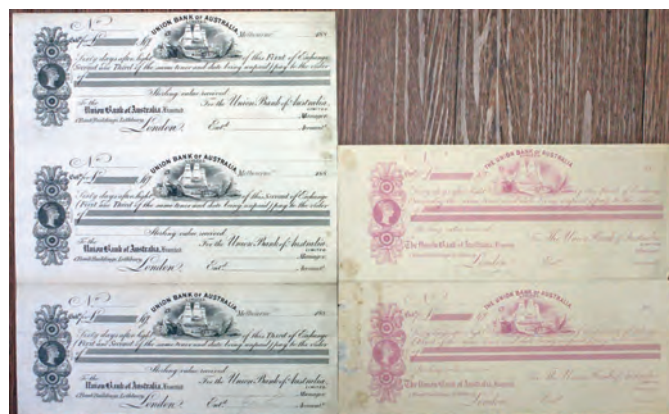 No
UNION BANK OF AUSTRALIA
Melbourne 188
Sixty days after Sight of this First of Exchange
(Second and Third of the same tenor and date being unpaid) pay to the order
of
Sterling value received
To the
Union Bank of Australia, Limited
1 Bank Buildings, Lothbury
London
For the Union Bank of Australia
LIMITED
Manager
Entd
Accountt
No
UNION BANK OF AUSTRALIA
Melbourne 188
Sixty days after Sight of this Second of Exchange
(First and Third of the same tenor and date being unpaid) pay to the order
of
Sterling value received
To the
Union Bank of Australia, Limited
1 Bank Buildings, Lothbury
London
For the Union Bank of Australia
LIMITED
Manager
Entd
Accountt
No
UNION BANK OF AUSTRALIA
Melbourne 188
Sixty days after Sight of this Third of Exchange
(First and Second of the same tenor and date being unpaid) pay to the order
of
Sterling value received
To the
Union Bank of Australia, Limited
1 Bank Buildings, Lothbury
London
For the Union Bank of Australia
LIMITED
Manager
Entd
Accountt
No
THE UNION BANK OF AUSTRALIA
of
Sterling value received
To
The Union Bank of Australia, Limited
London
For The Union Bank of Australia
Entd
No
THE UNION BANK OF AUSTRALIA
of
Sterling value received
To
The Union Bank of Australia, Limited
London
For The Union Bank of Australia
Entd